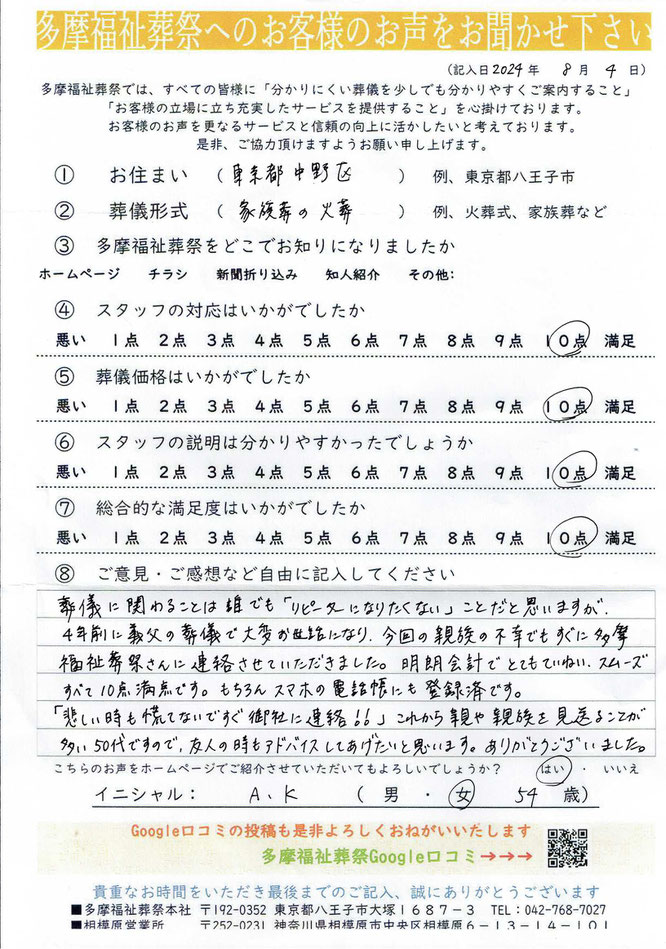 多摩福祉葬祭へのお客様のお声をお聞かせ下さい
(記入日2024年 8月 4日)
多摩福祉葬祭では、すべての皆様に「分かりにくい葬儀を少しでも分かりやすくご案内すること」
「お客様の立場に立ち充実したサービスを提供すること」を心掛けております。
お客様のお声を更なるサービスと信頼の向上に活かしたいと考えております。
是非、ご協力頂けますようお願い申し上げます。
① お住まい (東京都中野区) 例、東京都八王子市
② 葬儀形式 (家族葬の火葬) 例、火葬式、家族葬など
③ 多摩福祉葬祭をどこでお知りになりましたか
ホームページ チラシ 新聞折り込み 知人紹介 その他:
④ スタッフの対応はいかがでしたか
悪い 1点 2点 3点 4点 5点 6点 7点 8点 9点 10点 満足
⑤ 葬儀価格はいかがでしたか
悪い 1点 2点 3点 4点 5点 6点 7点 8点 9点 10点 満足
⑥ スタッフの説明は分かりやすかったでしょうか
悪い 1点 2点 3点 4点 5点 6点 7点 8点 9点 10点 満足
⑦ 総合的な満足度はいかがでしたか
悪い 1点 2点 3点 4点 5点 6点 7点 8点 9点 10点 満足
⑧ ご意見・ご感想など自由に記入してください
葬儀に関わることは誰でも「リピーターになりたくない」ことだと思いますが、
4年前に義父の葬儀で大変お世話になり、今回の親族の不幸でもすぐに多摩
福祉葬祭さんに連絡させていただきました。明朗会計でとてもていねい、スムーズ
すべて10点満点です。もちろんスマホの電話帳にも登録済です。
「悲しい時も慌てないですぐ御社に連絡!!」これから親や親族を見送ることが
多い50代ですので、友人の時もアドバイスしてあげたいと思います。ありがとうございました。
こちらのお声をホームページでご紹介させていただいてもよろしいでしょうか? はい ・ いいえ
イニシャル: A、K (男 ・ 女 54 歳)
Google口コミの投稿も是非よろしくおねがいいたします
多摩福祉葬祭Google口コミ→→→
貴重なお時間をいただき最後までのご記入、誠にありがとうございます
■多摩福祉葬祭本社 〒192-0352 東京都八王子市大塚1687-3 TEL:042-768-7027
■相模原営業所 〒252-0231 神奈川県相模原市中央区相模原6-13-14-101